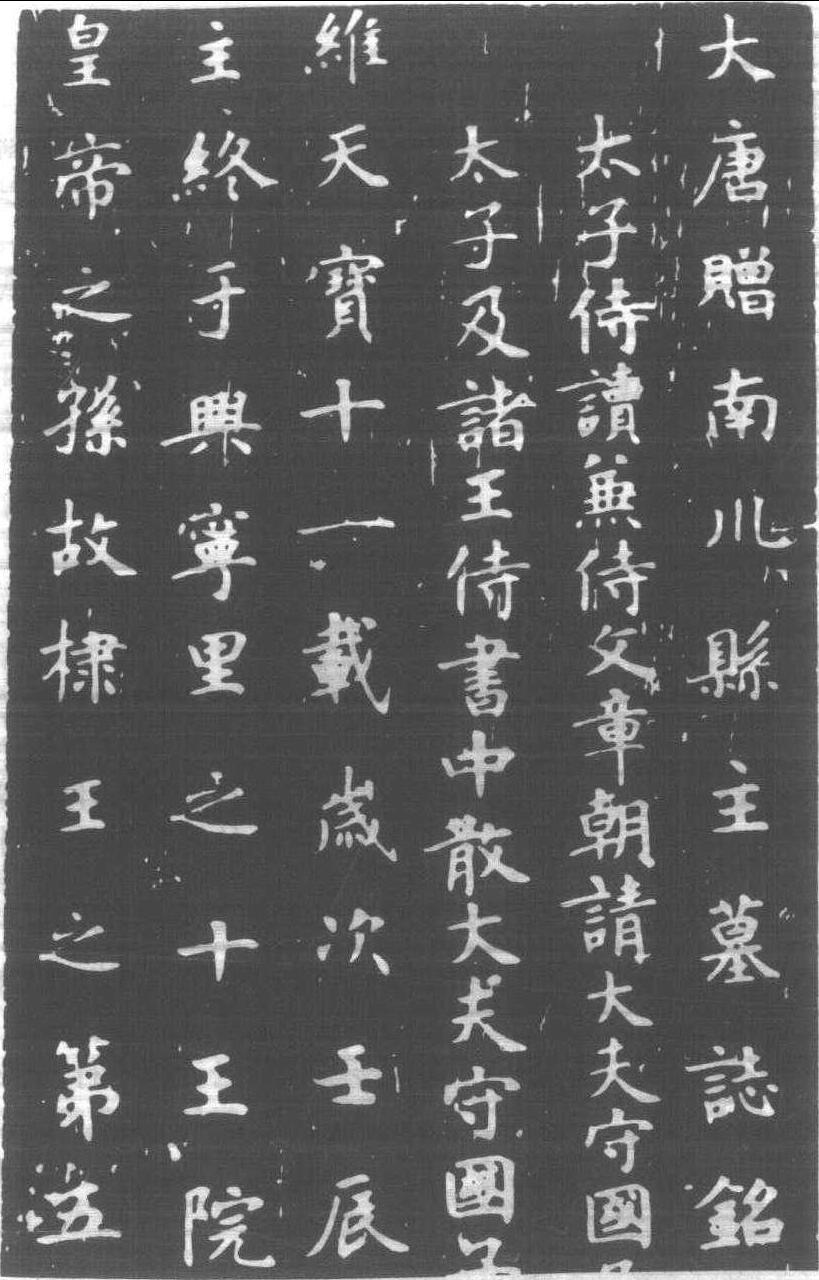 大唐贈南川縣主墓誌銘
太子侍讀兼侍文章朝請大夫守國
太子及諸王侍書中散大夫守國子
維天寶十一載歲次壬辰
主終于興寧里之十王院
皇帝之孫故棣王之第五